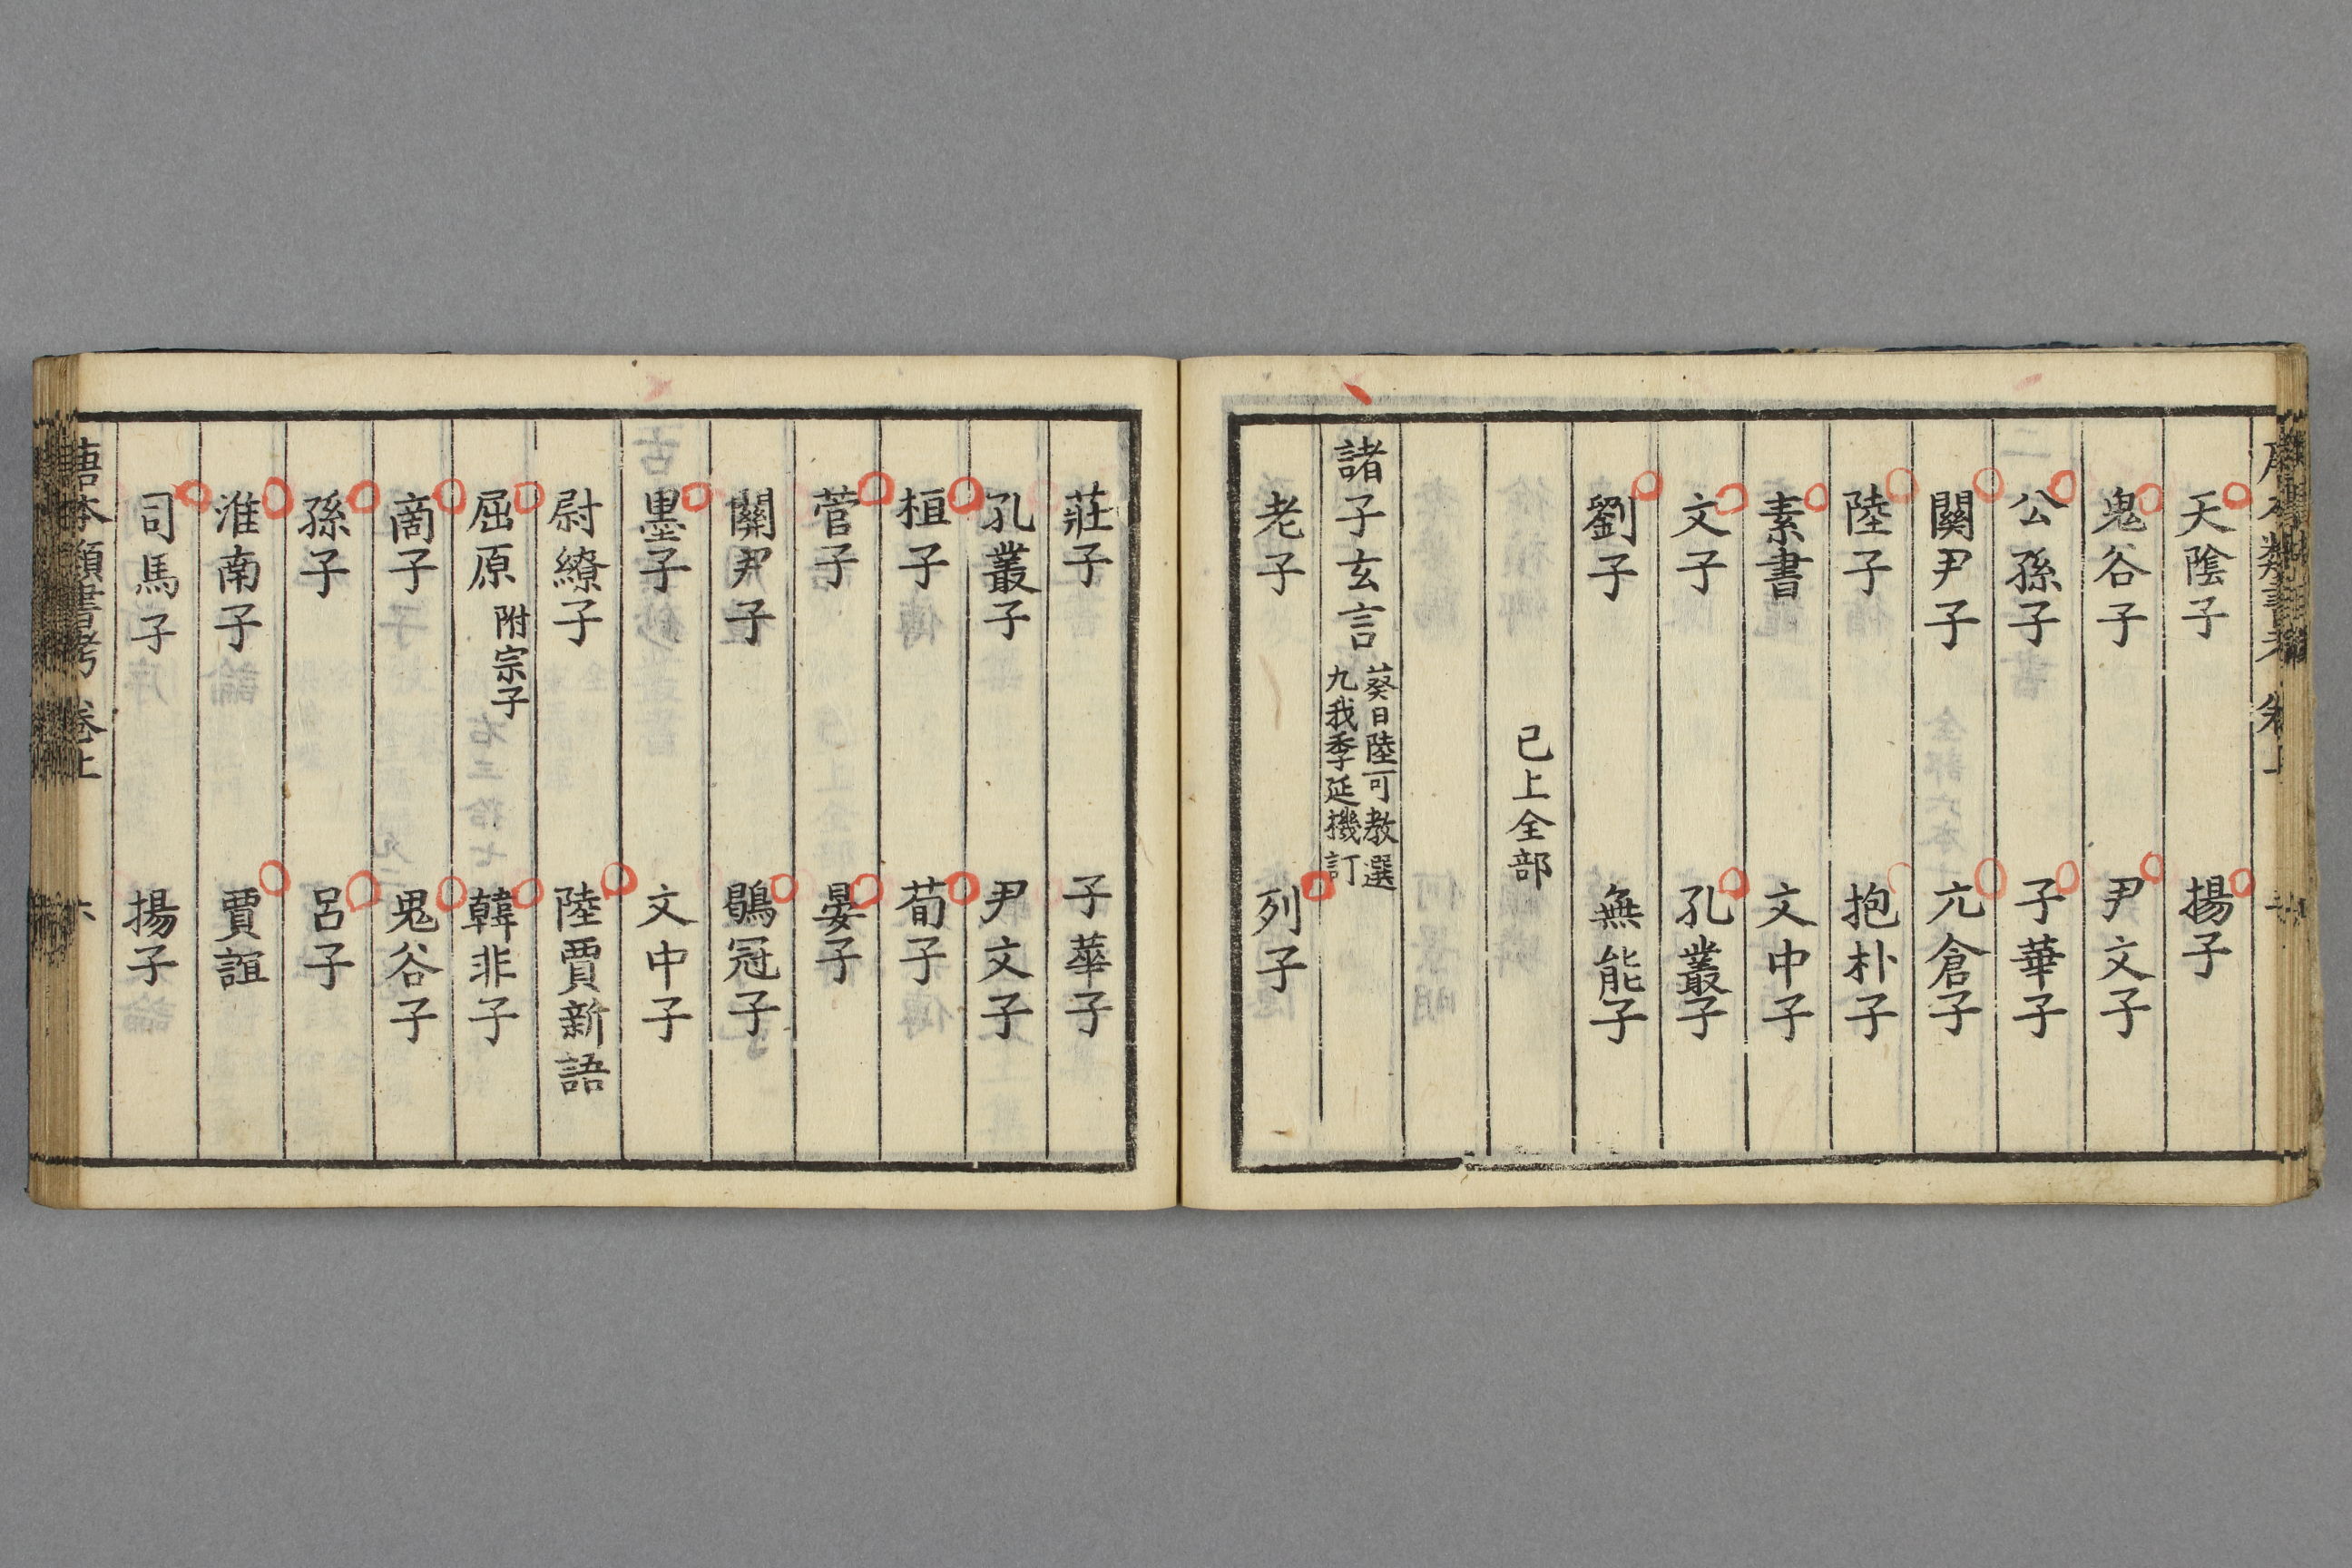 天陰子 揚子
鬼谷子 尹文子
公孫子 子華子
關尹子 亢倉子
陸子 抱朴子
素書 文中子
文子 孔叢子
劉子 無能子
已上全部
諸子玄言 葵日陸可教選
九我季延機訂
老子 列子
莊子 子華子
孔叢子 尹文子
桓子 荀子
管子 晏子
關尹子 鶡冠子
墨子 文中子
尉繚子 陸賈新語
屈原 附宗子 韓非子
商子 鬼谷子
孫子 呂子
淮南子 賈誼
司馬子 揚子
唐本類書考 卷上